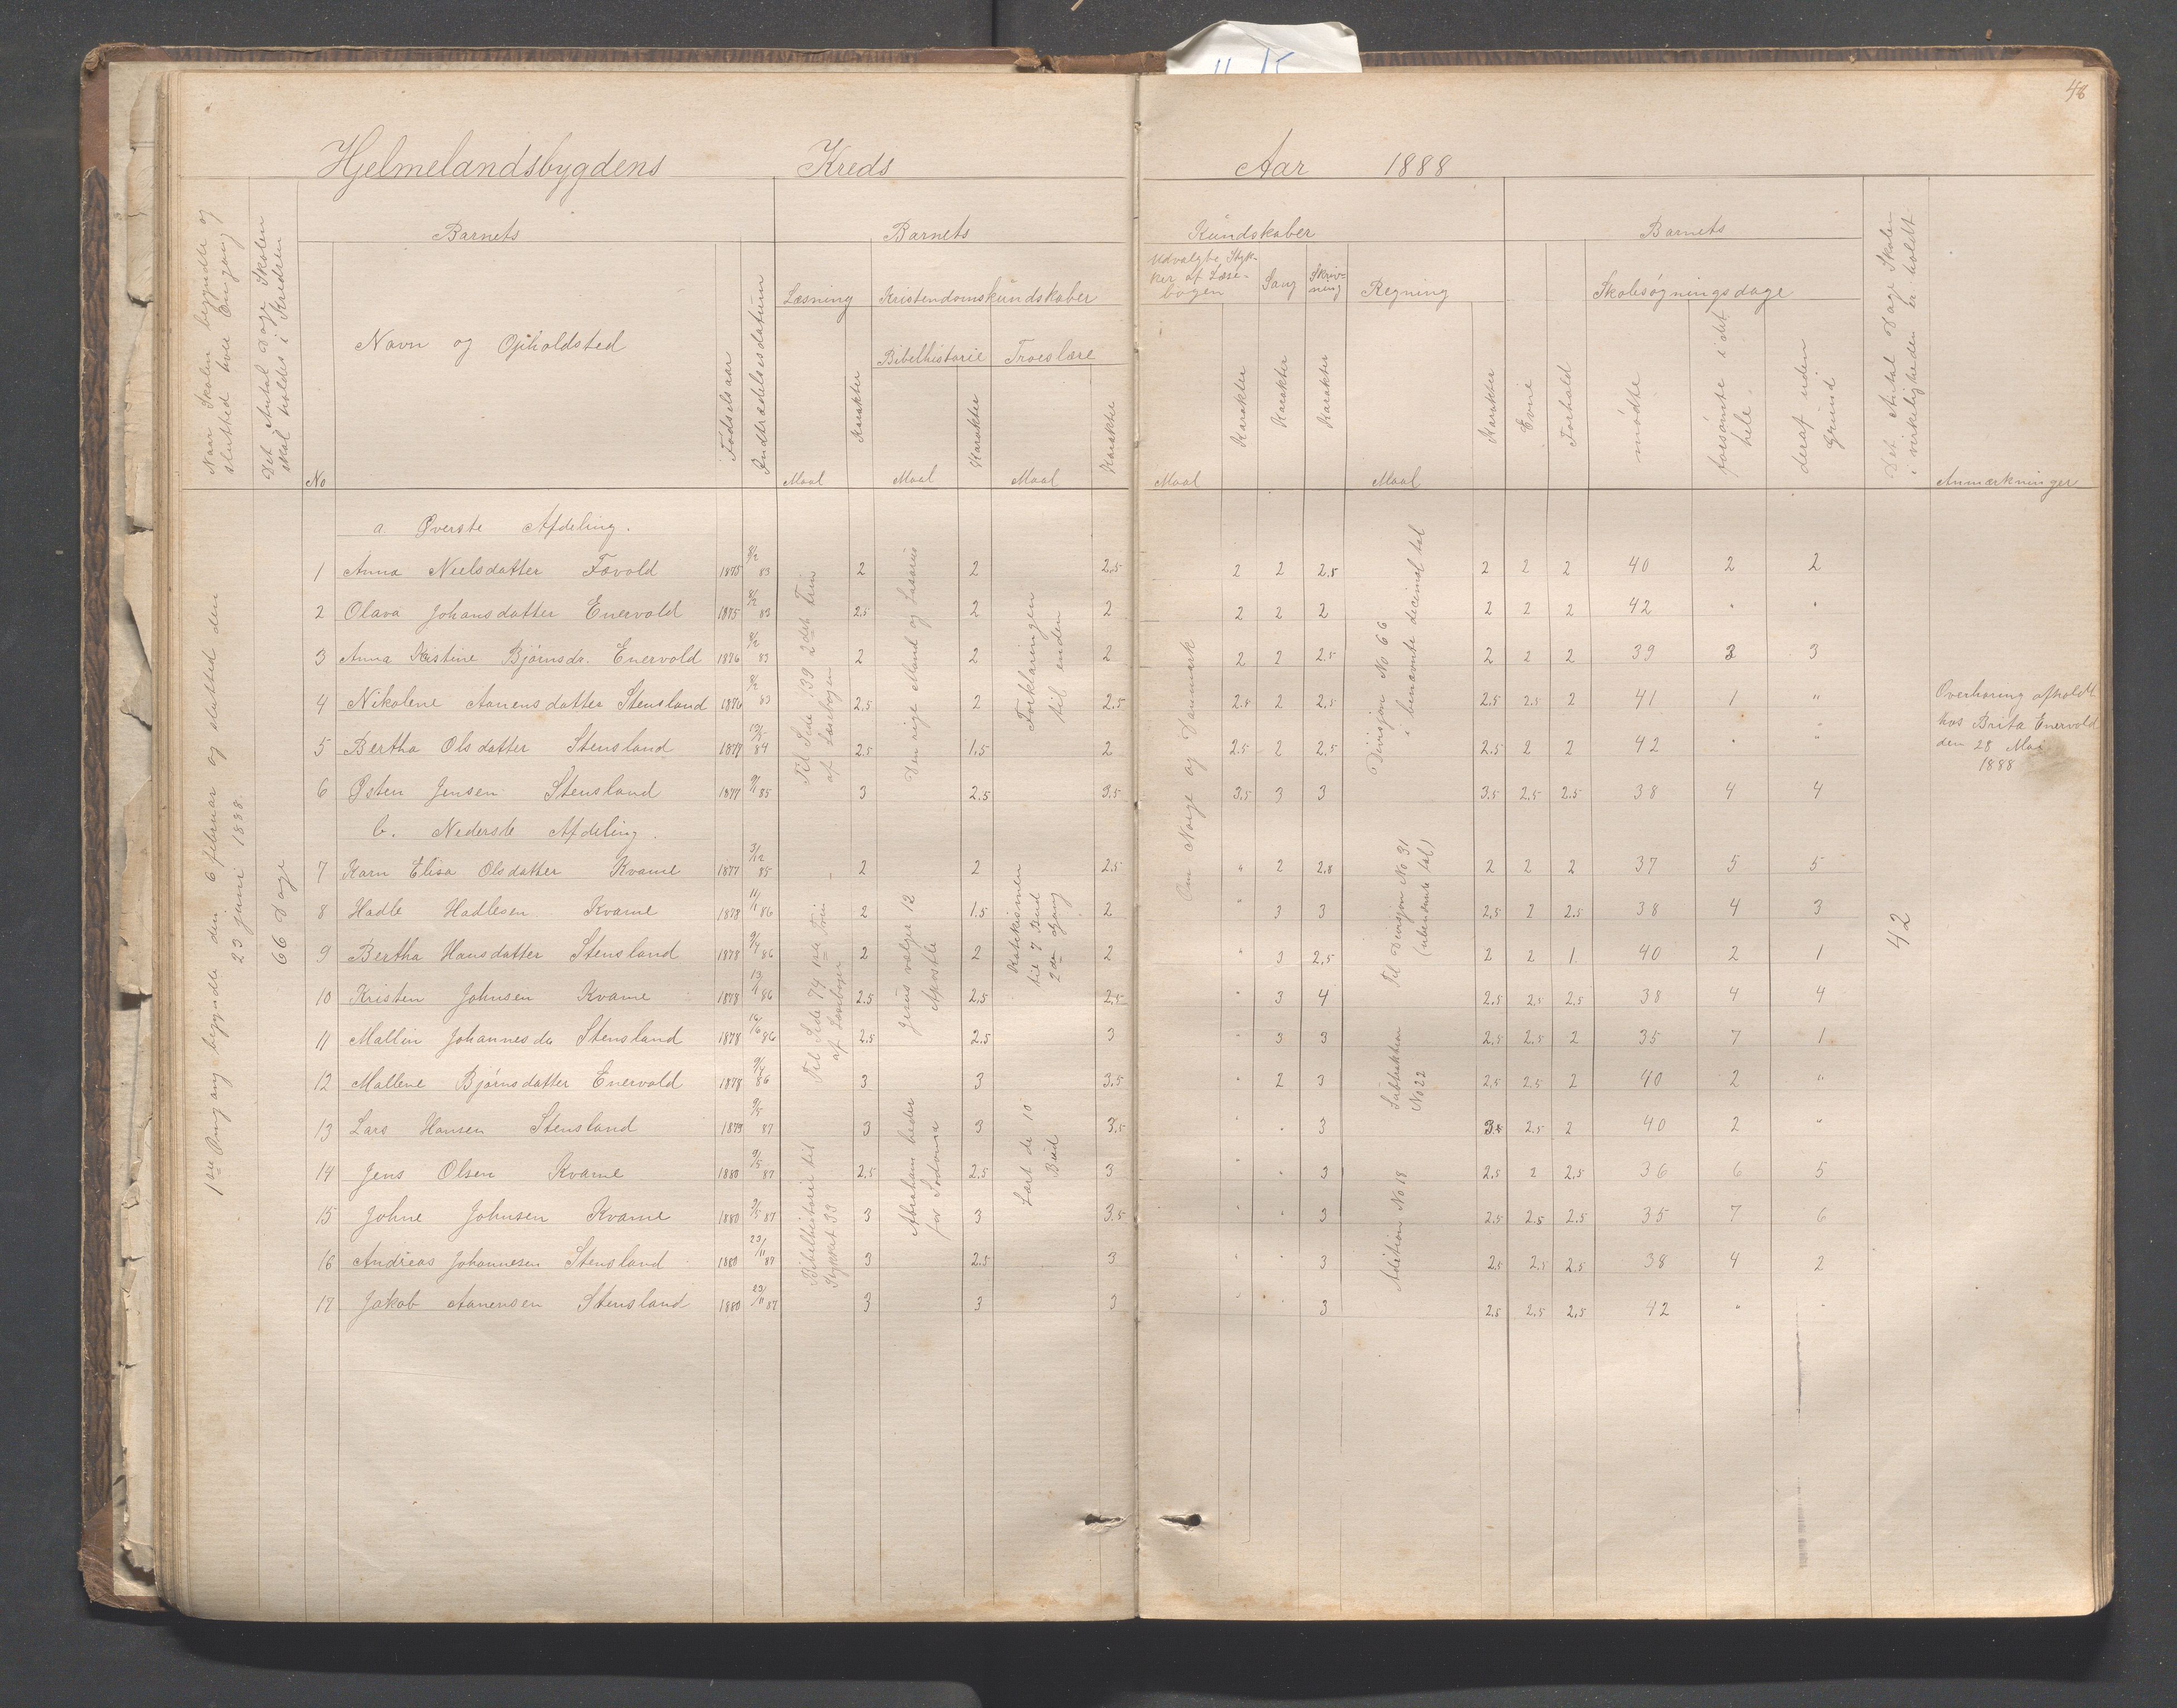 48
Hjelmelandsbygdens Kreds Aar 1888
Naar Skolen begyndte og slutted hver Omgang
Det Antal Dage Skolen skal holdes i Kredsen
Barnets
No
Navn og Opholdsted
Fødselsaar
Indtrædelsesdatum
Barnets Kundskaber
Læsning
Maal
Karakter
Kristendomskundskaber
Bibelhistorie
Maal
Karakter
Troeslære
Maal
Karakter
Udvalgte Styk-
ker af Læse-
bogen
Maal
Karakter
Sang
Karakter
Skriv-
ning
Karakter
Regning
Maal
Karakter
Barnets
Evne
Forhold
Skolesøgningsdage
mødte
forsømte i det hele
deraf uden Grund
Det Antal Dage Skolen i virkeligheden er holdt
Anmærkninger
1ste Omgang begyndte den 6 februar og slutted den
23 juni 1888
66 Dage
a. Øverste Afdeling.
1 Anna Nielsdatter Fævold 1875 8/2 83 2 2 2.5 2 2 2.5 2 2 2 40 2 2
2 Olava Johansdatter Enervold 1875 8/2 83 2.5 2 2 2 2 2 2 2 2 42 " "
3 Anna Kristine Bjørnsdr. Enervold 1876 8/2 83 2 2 2 2 2 2.5 2 2 2 39 3 3
4 Nikolene Aanensdatter Stensland 1876 8/2 83 2.5 2 2.5 2.5 2 2.5 2.5 2.5 2 41 1 "
5 Bertha Olsdatter Stensland 1877 84 2.5 1.5 2 2.5 2 2.5 2.5 2 2 42 " "
6 Østen Jensen Stensland 1877 9/1 85 3 2.5 3.5 3.5 3 3 3.5 2.5 2.5 38 4 4
b. Nederste Afdeling.
7 Karn Elisa Olsdatter Kvame 1877 3/12 85 2 2 2.5 " 2 2.8 2 2 2 37 5 5
8 Hadle Hadlesen Kvame 1878 11/1 86 2 1.5 2 " 3 3 2.5 2 2.5 38 4 3
9 Bertha Hansdatter Stensland 1878 9/4 86 2 2 2 " 3 2.5 2 2 1 40 2 1
10 Kristen Johnsen Kvame 1878 13/1 86 2.5 2.5 2.5 " 3 4 2.5 2.5 2.5 38 4 4
11 Mallin Johannesdr Stensland 1878 86 2.5 2.5 3 " 3 3 2.5 2.5 2 35 7 1
12 Mallene Bjørnsdatter Enervold 1878 9/4 86 3 3 3.5 " 2 3 2.5 2.5 2 40 2 "
13 Lars Hansen Stensland 1879 9/5 87 3 3 3.5 " " 3 3.5 2.5 2 40 2 "
14 Jens Olsen Kvame 1880 9/5 87 2.5 2.5 3 " " 3 2.5 2 2.5 36 6 5
15 Johne Johnsen Kvame 1880 9/5 87 3 3 3.5 " " 3 2.5 2.5 2.5 35 7 6
16 Andreas Johannesen Stensland 1880 23/11 87 3 2.5 3 " " 3 2.5 2.5 2.5 38 4 2
17 Jakob Aanensen Stensland 1880 23/11 87 3 3 3 " " 3 2.5 2.5 2.5 42 " "
Til Side 139 2det Trin
af Læsebogen
Til Side 74 1ste Trin
af Læsebogen
Bibelhistorie til
Stykket 33
Den rige Mand og Lasarus
Jesus vælger 12
Apostle
Abraham beder
for Sodoma
Forklaringen
til enden
Katekismen
til 7 Bud
2den Gang
Lært de 10
Bud
Om Norge og Danmark
Division No 66
i benævnte decimal tal
Til Division No 31
(ubenævnte tal)
Subtraktion
No 22
Adition No 18
42
Overhøring afholdt
hos Brita Enervold
den 28 Mai
1888